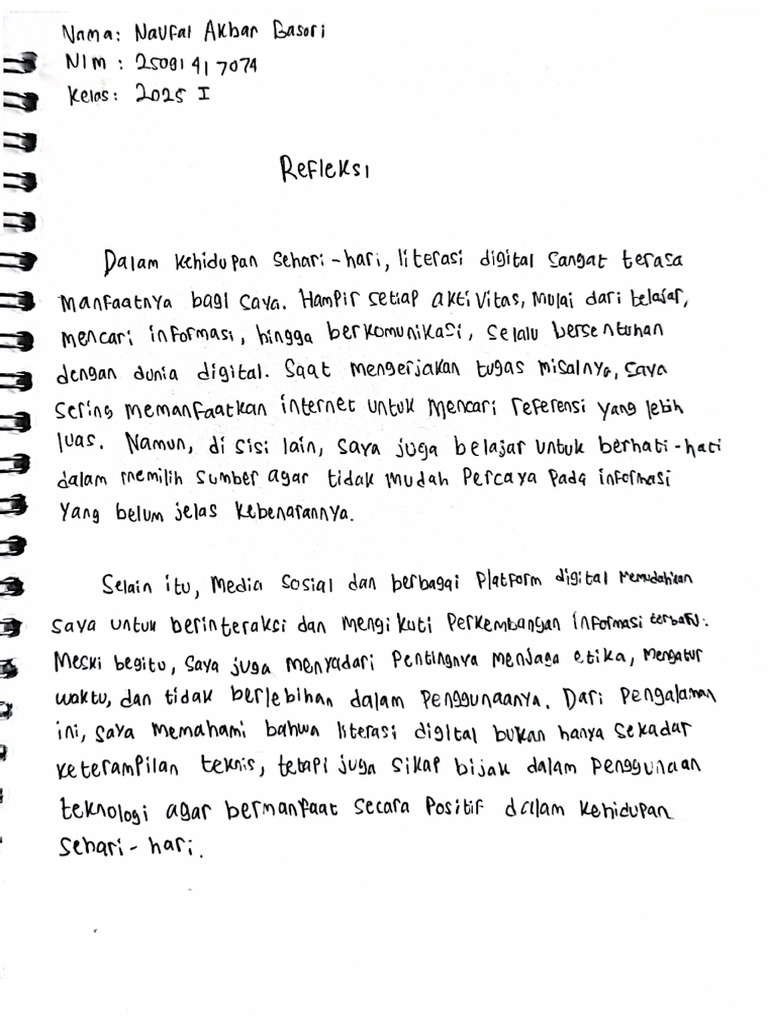 Nama: Naufal Akbar Basori
NIM : 25091417074
Kelas: 2025 I
Refleksi
Dalam kehidupan sehari-hari, literasi digital sangat terasa
manfaatnya bagi saya. Hampir setiap aktivitas, mulai dari belajar,
mencari informasi, hingga berkomunikasi, selalu bersentuhan
dengan dunia digital. Saat mengerjakan tugas misalnya, saya
sering memanfaatkan internet untuk mencari referensi yang lebih
luas. Namun, di sisi lain, saya juga belajar untuk berhati-hati
dalam memilih sumber agar tidak mudah percaya pada informasi
yang belum jelas kebenarannya.
Selain itu, media sosial dan berbagai platform digital memudahkan
saya untuk berinteraksi dan mengikuti perkembangan informasi terbaru.
Meski begitu, saya juga menyadari pentingnya menjaga etika, mengatur
waktu, dan tidak berlebihan dalam penggunaanya. Dari pengalaman
ini, saya memahami bahwa literasi digital bukan hanya sekadar
keterampilan teknis, tetapi juga sikap bijak dalam penggunaan
teknologi agar bermanfaat secara positif dalam kehidupan
sehari-hari.